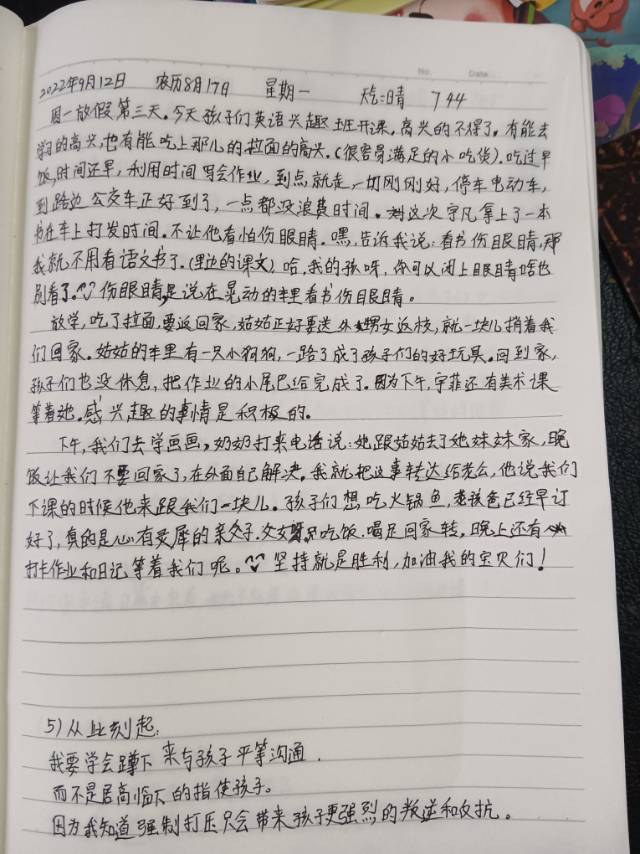 No.  Date.
2022年9月12日 农历8月17日 星期一 天气:晴 744
周一放假第三天。今天孩子们英语兴趣班开课,高兴的不得了。有能去
学习的高兴,也有能吃上那儿的拉面的高兴。(很容易满足的小吃货)。吃过早
饭,时间还早,利用时间写会作业,到点就走,一切刚刚好,停车电动车,
到路边公交车正好到了,一点都没浪费时间。这次宇凡拿上了一本
书在车上打发时间。不让他看怕伤眼睛。嘿,告诉我说:看书伤眼睛,那
我就不用看语文书了。(里边的课文)哈,我的孩呀,你可以闭上眼睛啥也
别看了。伤眼睛是说在晃动的车里看书伤眼睛。
放学,吃了拉面,要返回家,姑姑正好要送外甥女返校,就一块儿捎着我
们回家。姑姑的车里有一只小狗狗,一路了成了孩子们的好玩具。回到家,
孩子们也没休息,把作业的小尾巴给完成了。因为下午,宇菲还有美术课
等着她。感兴趣的事情是积极的。
下午,我们去学画画,奶奶打来电话说:她跟姑姑去了她妹妹家,晚
饭让我们不要回家了,在外面自己解决。我就把这事转达给老公,他说我们
下课的时候他来跟我们一块儿。孩子们想吃火锅鱼,老爸已经早订
好了,真的是心有灵犀的亲父子,父女 吃饭,喝足回家转,晚上还有
打卡作业和日记等着我们呢。坚持就是胜利,加油我的宝贝们!
5)从此刻起:
我要学会蹲下来与孩子平等沟通.
而不是居高临下的指使孩子。
因为我知道强制打压只会带来孩子更强烈的叛逆和反抗。